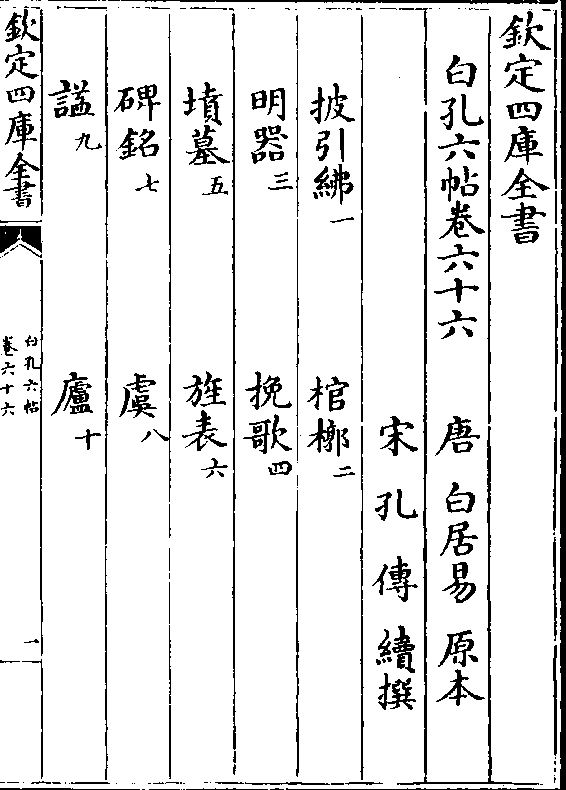 欽定四庫全書
白孔六帖卷六十六
唐 白居易 原本
宋 孔 傳 續撰
披引紼一 棺槨二
明器三 挽歌四
墳墓五 旌表六
碑銘七 虞八
謚九 廬十
欽定四庫全書
白孔六帖
卷六十六
一